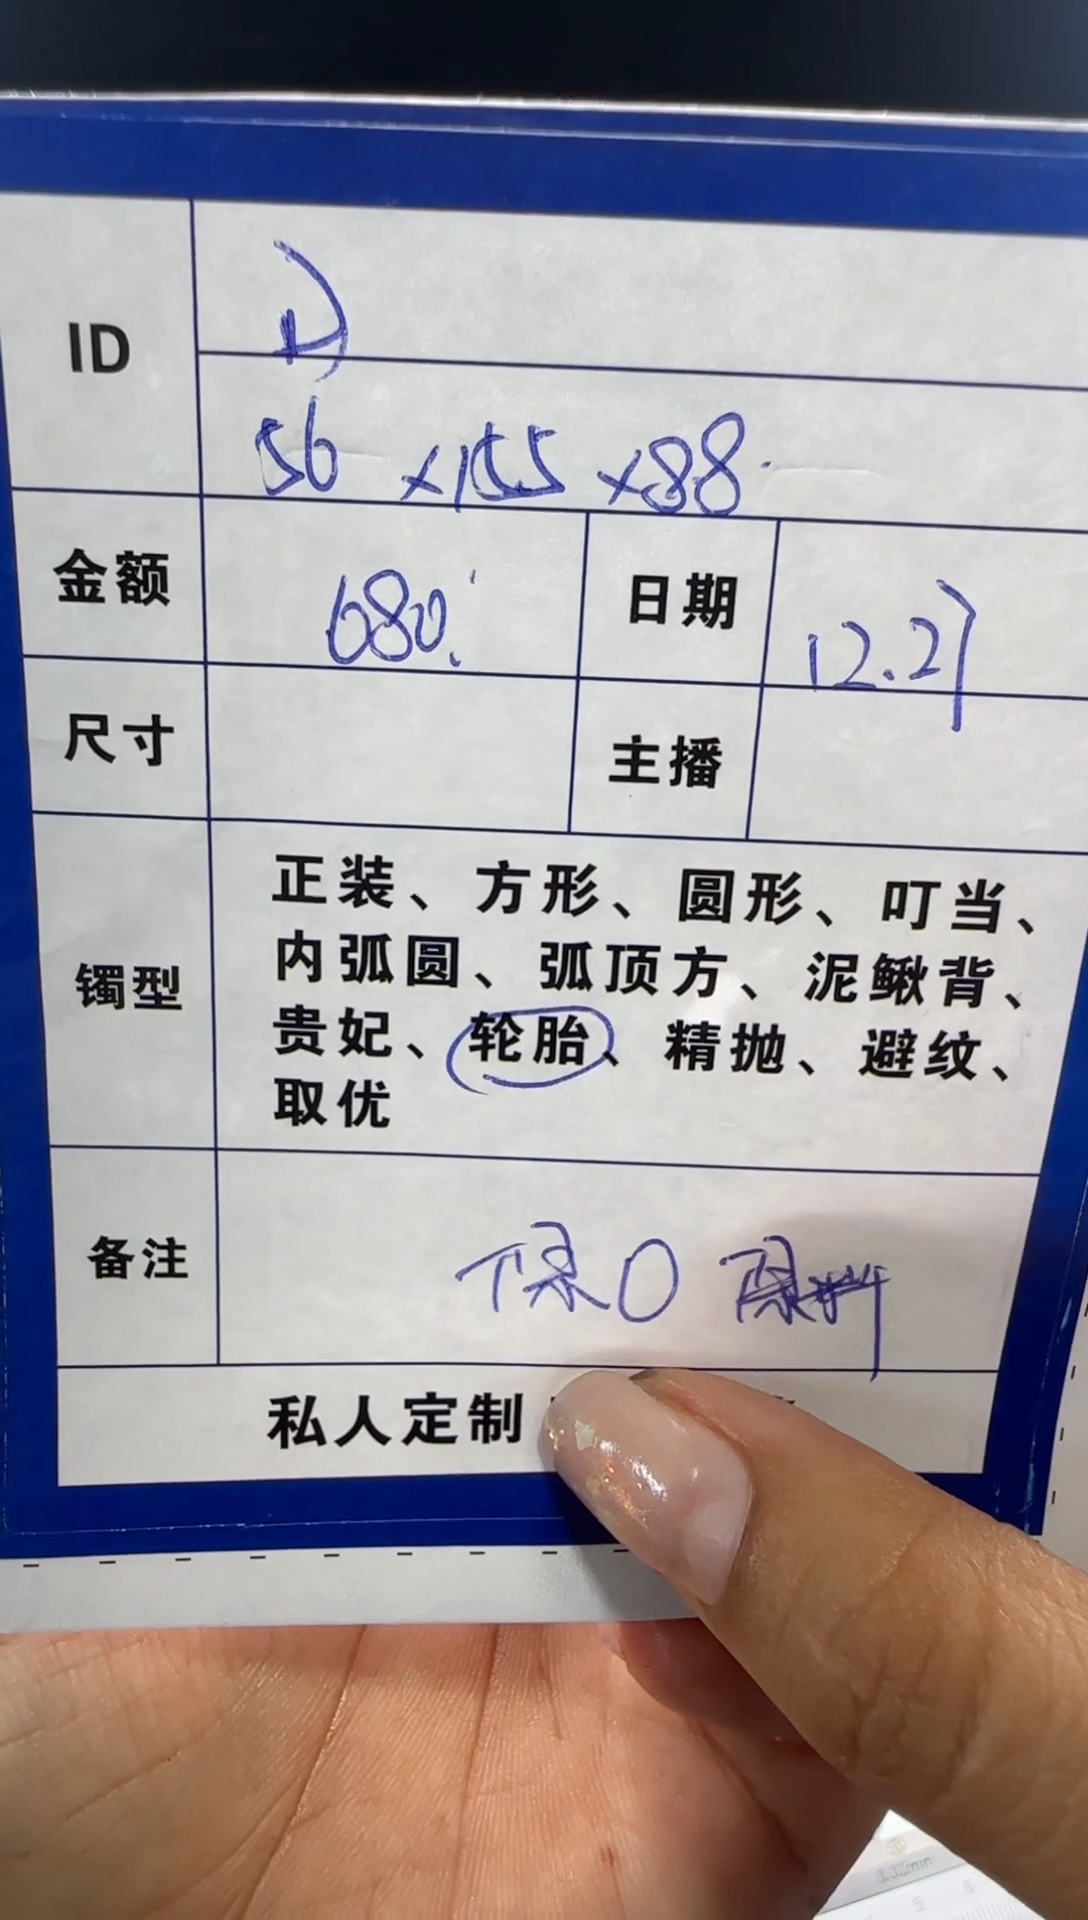 ID
56 x155 x88.
金额 680. 日期 12.27
尺寸 主播
镯型
正装、方形、圆形、叮当、
内弧圆、弧顶方、泥鳅背、
贵妃、轮胎、精抛、避纹、
取优
备注 下保0
私人定制